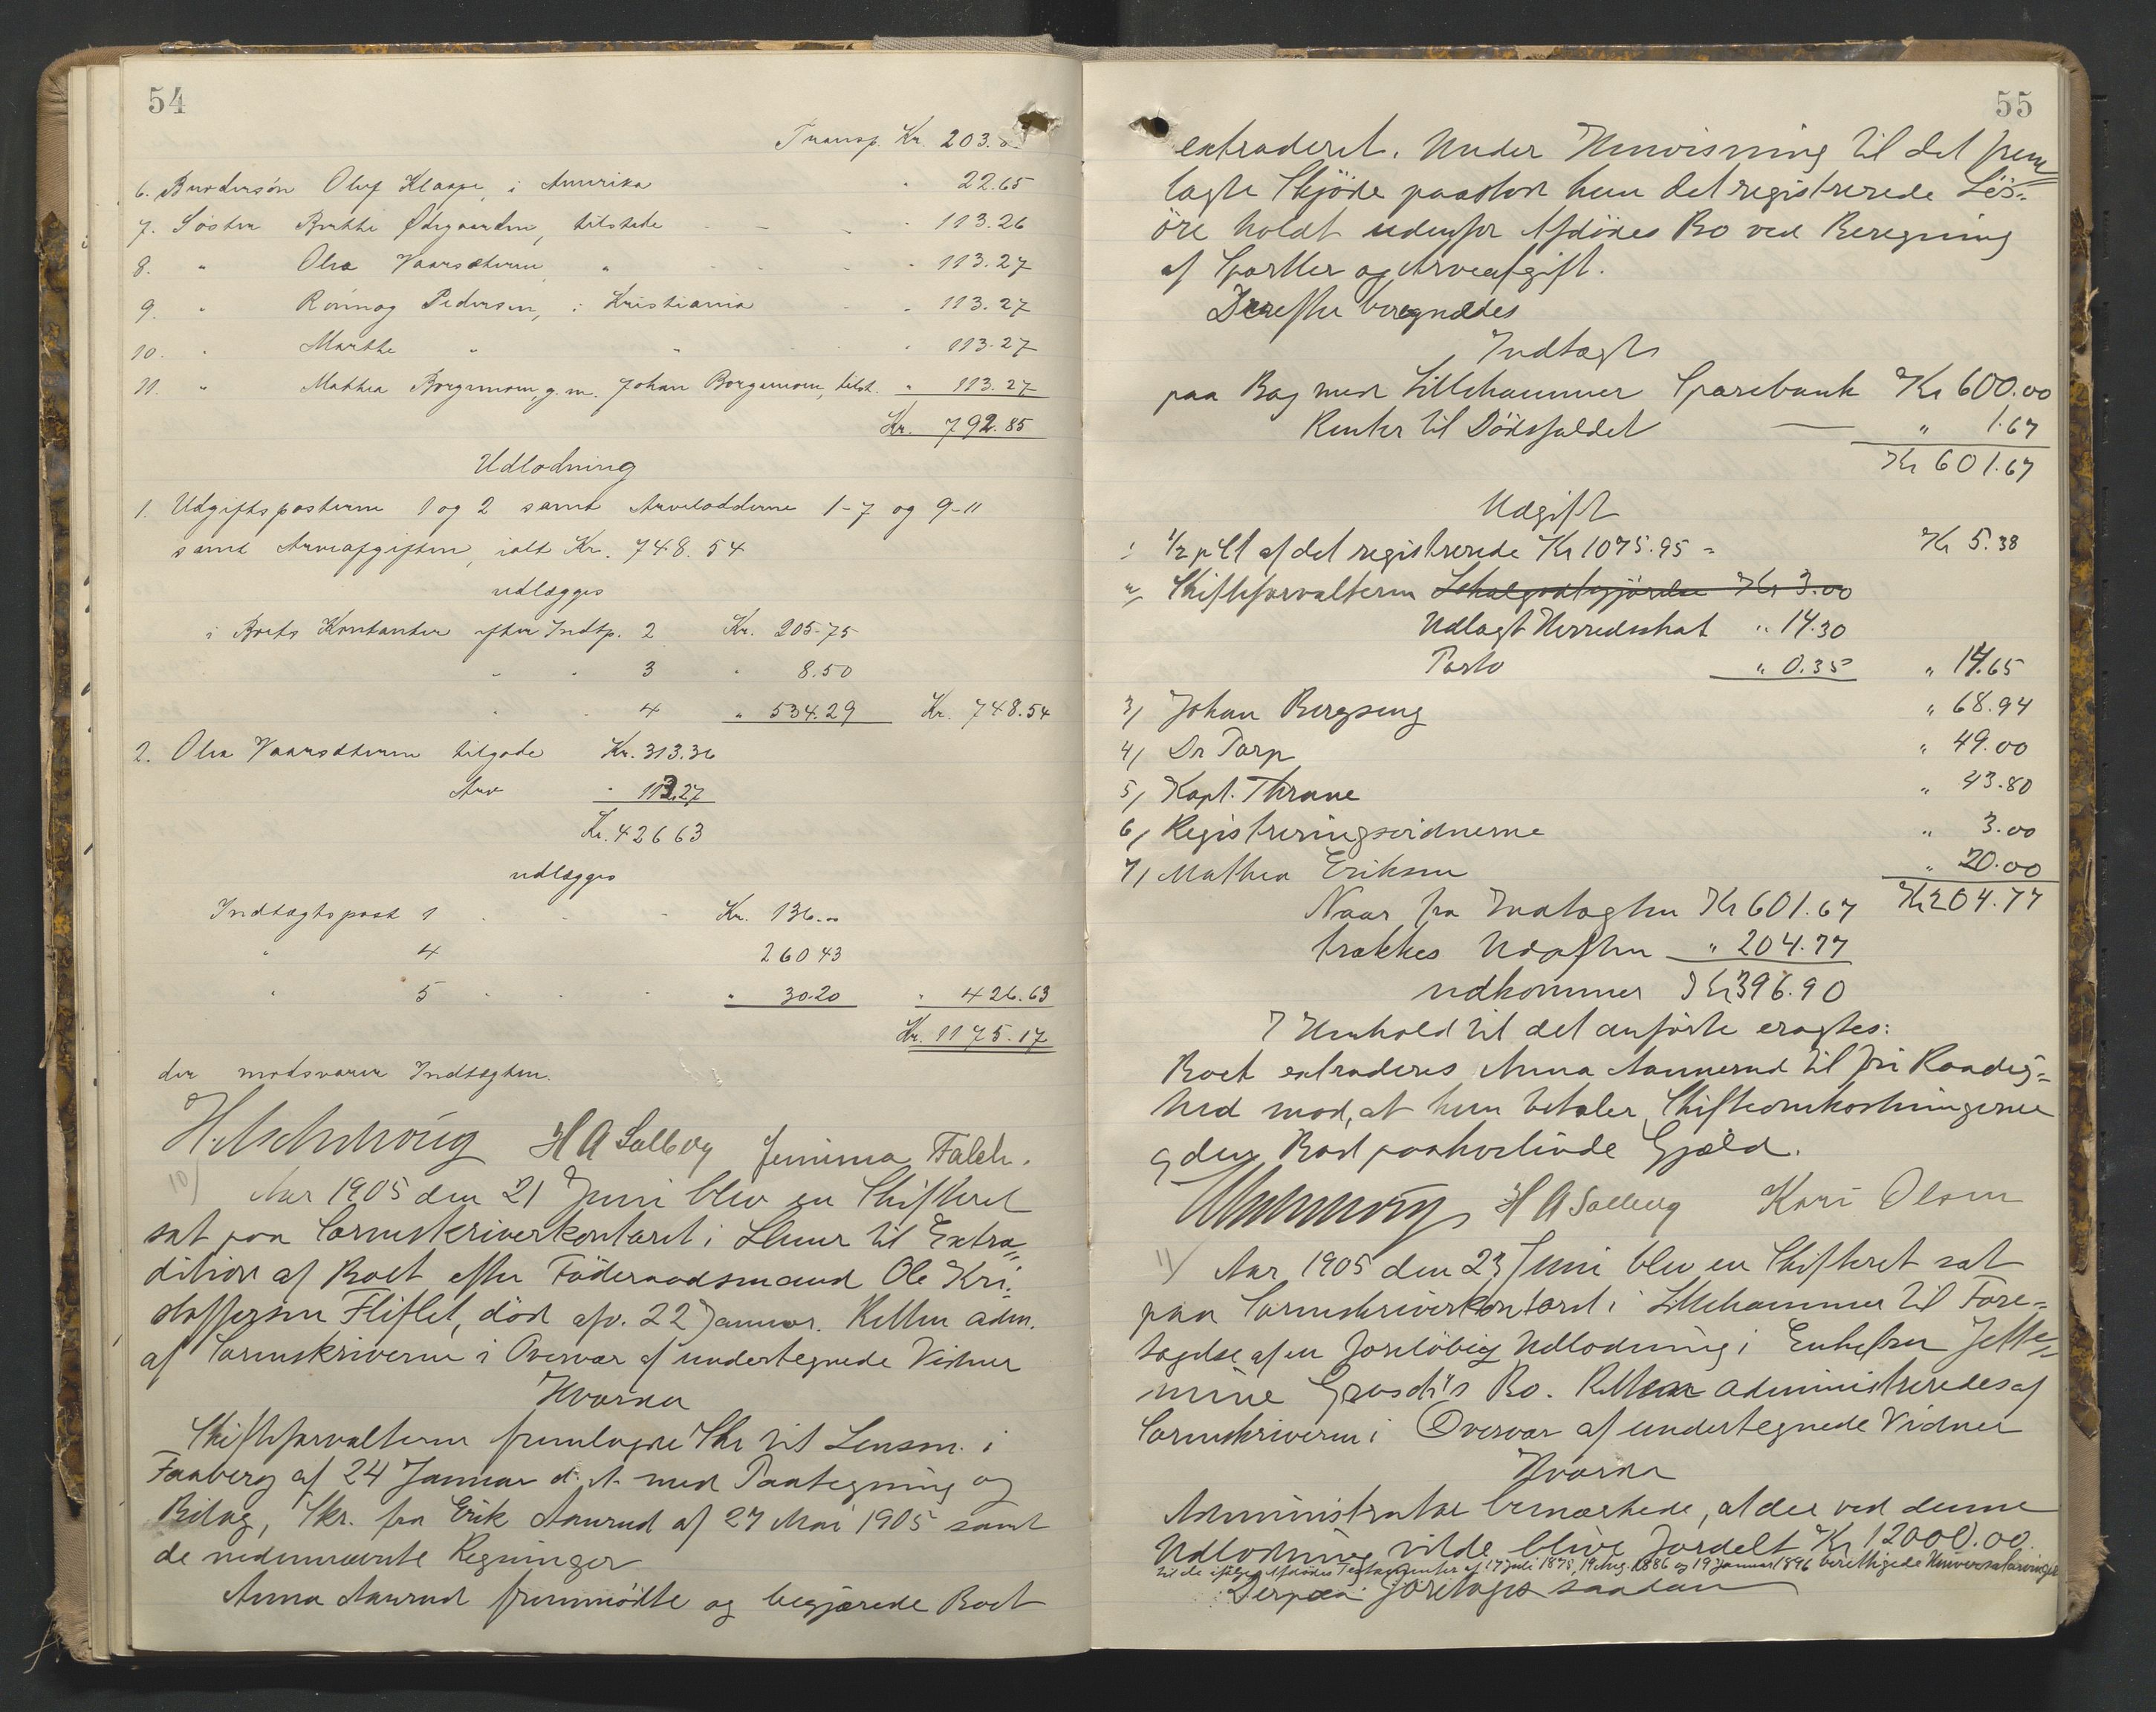 54
Transp. Kr. 203.
6. Brodersön Oluf Klaape, i Amerika " 22.65
7. Söster Berthe Ødegaarden, tilstede " 113.26
8. " Olea Vaarsæteren " " 113.27
9. " Rønnog Pedersen, i Kristiania " 113.27
10. " Marthe " " " 113.27
11. " Mathea Borgemoen, g. m. Johan Borgemoen, tilst. " 113.27
Kr. 792.85
Udlodning
1. Udgiftsposterne 1 og 2 samt Arvelodderne 1-7 og 9-11
samt Arveafgiften, ialt Kr. 748.54
udlægges
i Boets Kontanter efter Indtp. 2 Kr. 205.75
" " 3 " 8.50
" " 4 " 534.29 Kr. 748.54
2. Olea Vaarsæteren tilgode Kr. 313.36
Arv " 113.27
Kr. 426 63
udlægges
Indtægtspost 1 Kr. 136.00
" 4 260 43
" 5 " 30.20 " 426.63
Kr. 1175.17
der modsvarer Indtægten.
H A Salberg Jemima Falch.
10) Aar 1905 den 21 Juni blev en Skifteret
sat paa Sorenskriverkontoret i Lhmr til Extra-
dition af Boet efter Föderaadsmand Ole Kri-
stoffersen Fliflet, död afv. 22 Januar. Retten adm.
af Sorenskriveren i Overvær af undertegnede Vidner
Hvorda
Skifteforvalteren fremlagde Skr til Lensm. i
Faaberg af 24 Januar d. A. med Paategning og
Bilag, Skr. fra Erik Aamrud af 27 Mai 1905 samt
de nedennævnte Regninger
Anna Aamrud fremmödte og begjærede Boet
55
extraderet. Under Henvisning til det frem
lagte Skjöde paastod hun det registrerede Lös-
öre holdt udenfor Afdödes Bo ved Beregning
af Sportler og Arveafgift.
Derefter beregnedes
Indtægt
paa Bog med Lillehammer Sparebank Kr 600.00
Renter til Dödsfaldet " 1.67
Kr 601.67
Udgift
1. 1/2 pCt af det registrerede Kr 1075.95 = Kr 5.38
2/ Skifteforvalteren Lokalgodtgjörelse Kr 3.00
Udlagt Herredsskat " 14.30
Porto " 0.35 " 14.65
3/ Johan Bergseng " 68.94
4/ Dr Torp " 49.00
5/ Kapt. Thrane " 43.80
6/ Registreringsvidnerne " 3.00
7/ Mathea Eriksen " 20.00
Naar fra Indtægten Kr 601.67 Kr 204.77
trækkes Udgiften " 204.77
udkommer Kr 396.90
I Henhold til det anförte eragtes:
Boet extraderes Anna Aamrud til fri Raadig-
hed mod, at hun betaler Skifteomkostningerne
og den Boet paahvilende Gjæld.
H A Salberg Kari Olsen
11) Aar 1905 den 23 Juni blev en Skifteret sat
paa Sorenskriverkontoret i Lillehammer til Fore-
tagelse af en foreløbig Udlodning i Enkefru
mine Bo. Retten administreredes af
Sorenskriveren i Overvær af undertegnede Vidner
Hvorda
Administrator bemærkede, at der ved denne
Udlodning vilde blive fordelt Kr 12000.00.
til de ifølge Afdødes Testamenter af 17 Juli 1878, 19 Aug. 1886 og 19 Januar 1896 berettigede Universalarvinger
Derpaa foretoges saadan